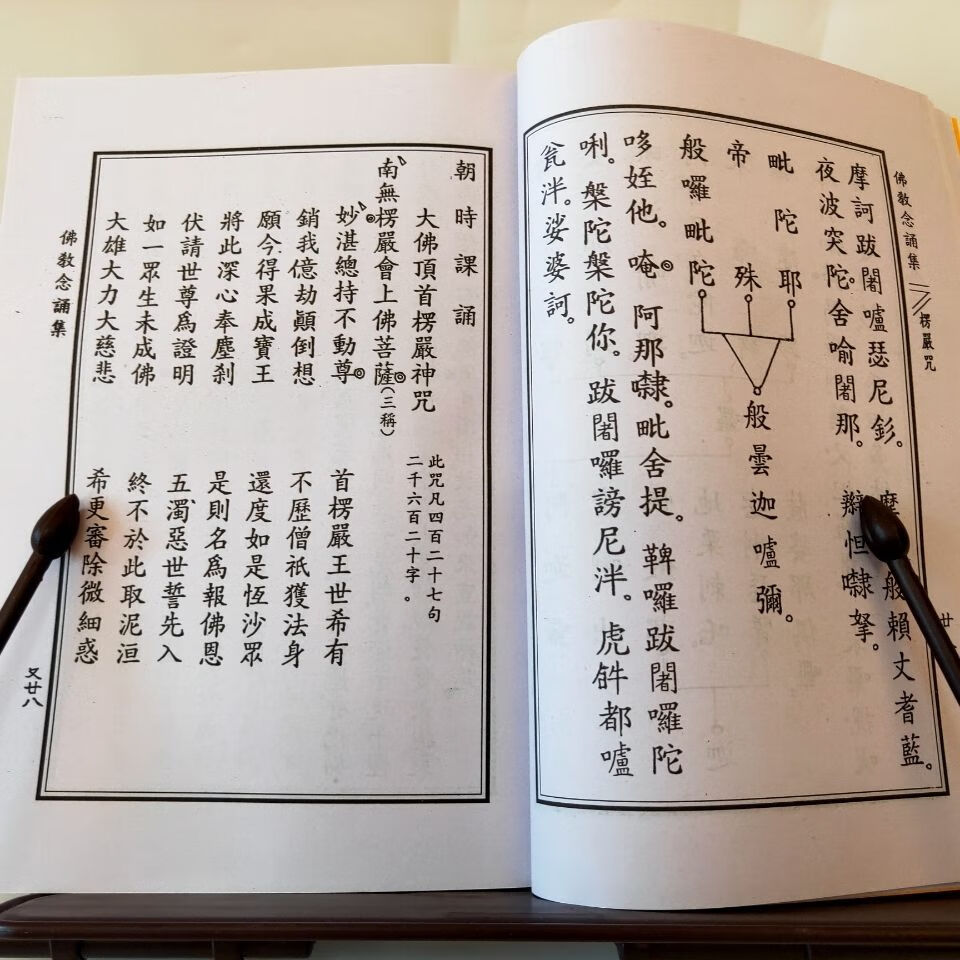 佛教念誦集 楞嚴咒
摩訶跋闍嚧瑟尼釤。 般賴丈耆藍。
夜波突陀。舍喻闍那。 辮怛㘑拏。
毗陀耶
帝殊
般囉毗陀
般曇迦嚧彌。
哆姪他。唵◎阿那㘑。毗舍提。鞞囉跋闍囉陀
唎。槃陀槃陀你。跋闍囉謗尼泮。虎𤙖都嚧
瓮泮。娑婆訶。
朝時課誦
大佛頂首楞嚴神咒 此咒凡四百二十七句
二千六百二十字。
南無楞嚴會上佛菩薩◎(三稱)
妙湛總持不動尊◎ 首楞嚴王世希有
銷我億劫顛倒想 不歷僧祇獲法身
願今得果成寶王 還度如是恆沙眾
將此深心奉塵剎 是則名為報佛恩
伏請世尊為證明 五濁惡世誓先入
如一眾生未成佛 終不於此取泥洹
大雄大力大慈悲 希更審除微細惑
佛教念誦集
又廿八